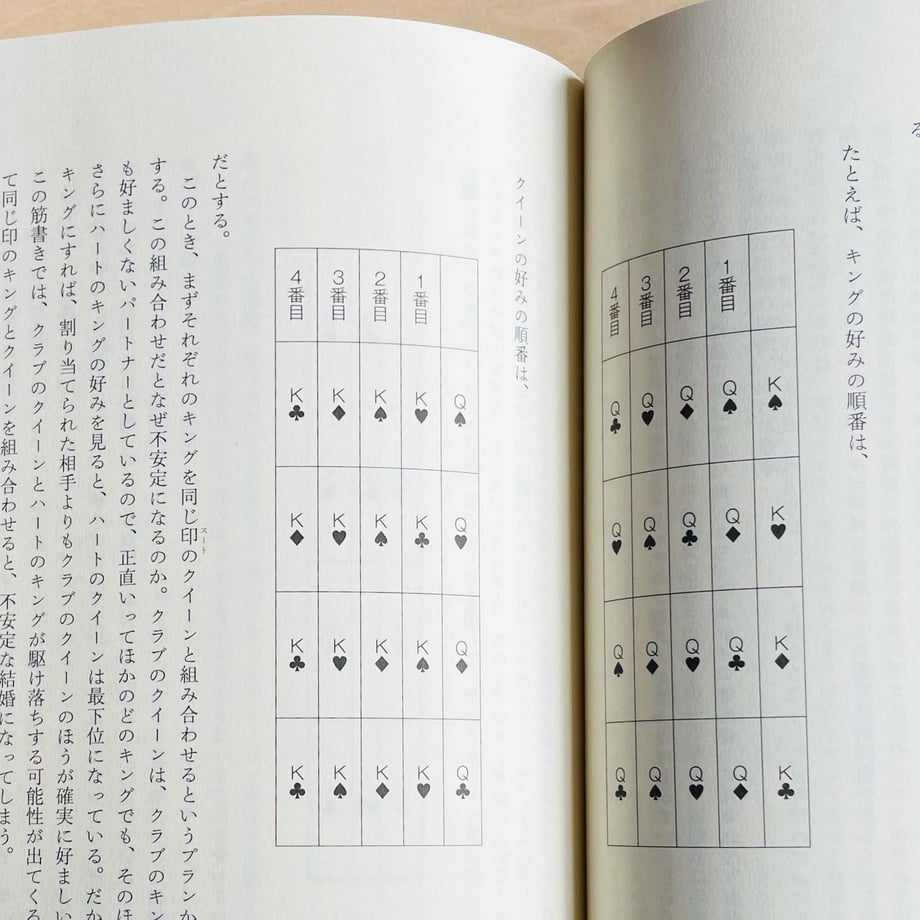 る
たとえば、キングの好みの順番は、
K♠ K♥ K♦ K♣
1番目 Q♠ Q♦ Q♣ Q♦
2番目 Q♦ Q♣ Q♥ Q♥
3番目 Q♥ Q♠ Q♦ Q♠
4番目 Q♣ Q♥ Q♠ Q♣
クイーンの好みの順番は、
Q♠ Q♥ Q♦ Q♣
1番目 K♥ K♣ K♠ K♥
2番目 K♠ K♠ K♦ K♦
3番目 K♦ K♥ K♥ K♠
4番目 K♣ K♦ K♣ K♣
だとする。
このとき、まずそれぞれのキングを同じ印スートのクイーンと組み合わせるというプランか
する。この組み合わせだとなぜ不安定になるのか。クラブのクイーンは、クラブのキン
も好ましくないパートナーとしているので、正直いってほかのどのキングでも、そのほ
さらにハートのキングの好みを見ると、ハートのクイーンは最下位になっている。だか
キングにすれば、割り当てられた相手よりもクラブのクイーンのほうが確実に好ましい
この筋書きでは、クラブのクイーンとハートのキングが駆け落ちする可能性が出てくる
て同じ印のキングとクイーンを組み合わせると、不安定な結婚になってしまう。